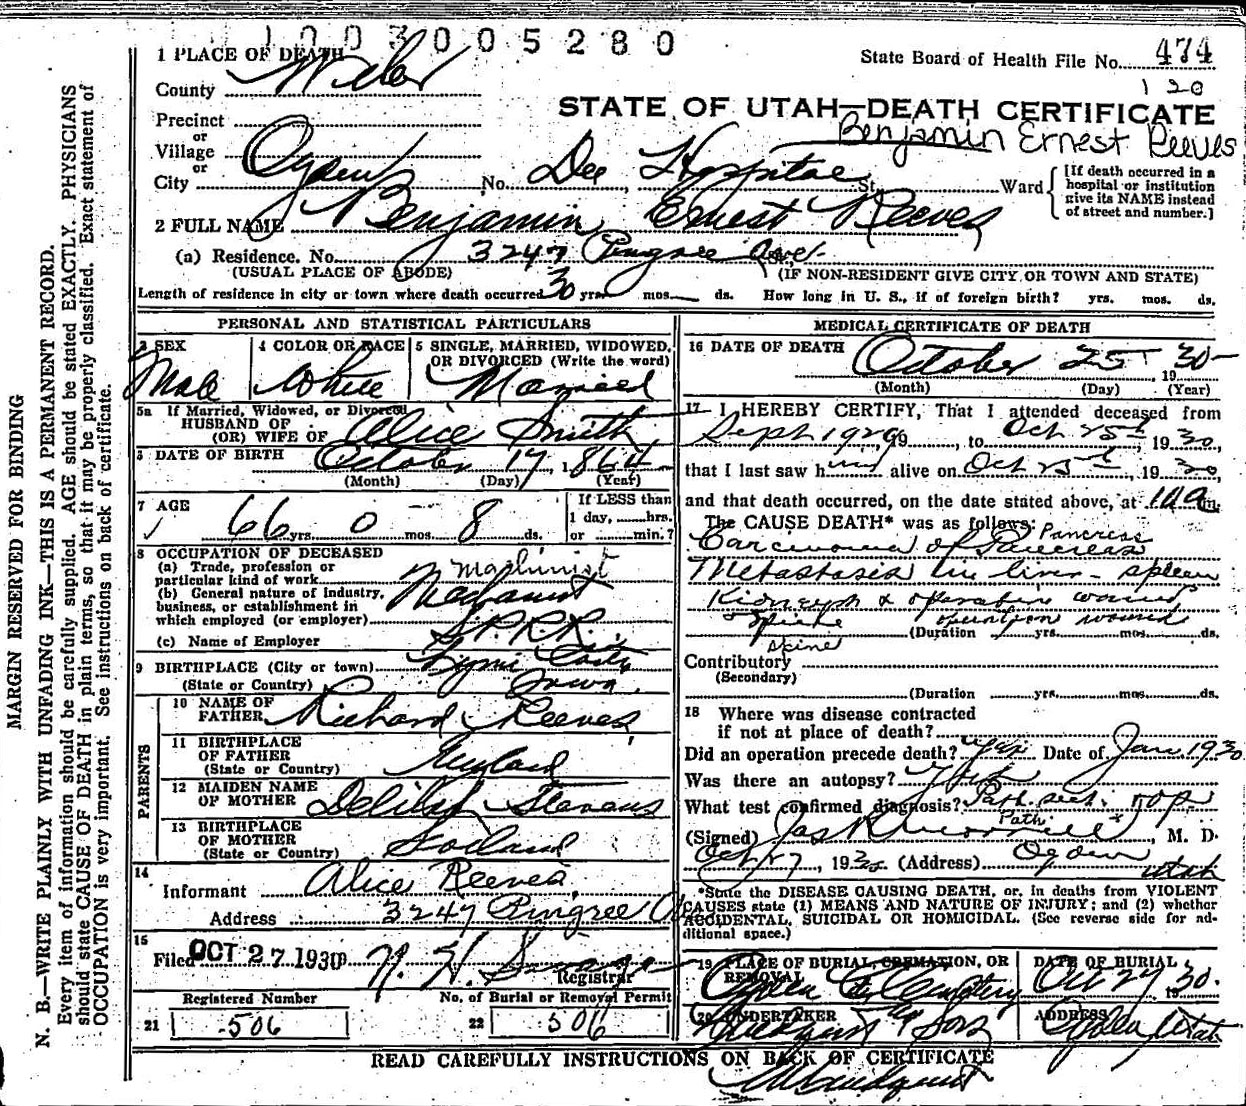 1003005280
1 PLACE OF DEATH
State Board of Health File No. 474
120
County Weber
STATE OF UTAH—DEATH CERTIFICATE
Precinct
or
Benjamin Ernest Reeves
Village
or
City Ogden No. Dee Hospital St. Ward
[If death occurred in a hospital or institution give its NAME instead of street and number.]
2 FULL NAME Benjamin Ernest Reeves
(a) Residence. No. 3247 Pingree Ave.
(USUAL PLACE OF ABODE) (IF NON-RESIDENT GIVE CITY OR TOWN AND STATE)
Length of residence in city or town where death occurred 30 yrs. mos. ds. How long in U. S., if of foreign birth? yrs. mos. ds.
PERSONAL AND STATISTICAL PARTICULARS
3 SEX Male
4 COLOR OR RACE White
5 SINGLE, MARRIED, WIDOWED, OR DIVORCED (Write the word) Married
5a If Married, Widowed, or Divorced
HUSBAND OF
(OR) WIFE OF Alice Smith
6 DATE OF BIRTH October 17, 1864
(Month) (Day) (Year)
7 AGE 66 yrs. 0 mos. 8 ds.
If LESS than
1 day, hrs.
or min.?
8 OCCUPATION OF DECEASED
(a) Trade, profession or
particular kind of work Machinist
Machinist
(b) General nature of industry,
business, or establishment in
which employed (or employer)
(c) Name of Employer S.P.R.R.
9 BIRTHPLACE (City or town)
(State or Country) Iowa
PARENTS
10 NAME OF
FATHER Richard Reeves
11 BIRTHPLACE
OF FATHER
(State or Country) England
12 MAIDEN NAME
OF MOTHER Delilah Stevens
13 BIRTHPLACE
OF MOTHER
(State or Country)
14
Informant Alice Reeves
Address 3247 Pingree
15
Filed OCT 27 1930
Registrar
Registered Number
21 506
No. of Burial or Removal Permit
22 506
MEDICAL CERTIFICATE OF DEATH
16 DATE OF DEATH October 25 1930
(Month) (Day) (Year)
17 I HEREBY CERTIFY, That I attended deceased from
Sept 1929, 19, to Oct 25th, 1930,
that I last saw him alive on Oct 25th, 1930,
and that death occurred, on the date stated above, at
The CAUSE DEATH* was as follows:
Pancreas
Carcinoma of Pancreas
Metastasis in liver - spleen
Kidneys & operative wound
Spine operation wound
(Duration yrs. mos. ds.
spine
Contributory
(Secondary)
(Duration yrs. mos. ds.
18 Where was disease contracted
if not at place of death?
Did an operation precede death? yes Date of Jan 1930
Was there an autopsy?
What test confirmed diagnosis? Path.
Path
(Signed) , M. D.
Oct 27, 1930 (Address) Ogden Utah
*State the DISEASE CAUSING DEATH, or, in deaths from VIOLENT
CAUSES state (1) MEANS AND NATURE OF INJURY; and (2) whether
ACCIDENTAL, SUICIDAL OR HOMICIDAL. (See reverse side for ad-
ditional space.)
19 PLACE OF BURIAL, CREMATION, OR
REMOVAL Ogden City Cemetery
DATE OF BURIAL
Oct 27 1930.
20 UNDERTAKER
Lindquist & Sons
ADDRESS
Ogden Utah
READ CAREFULLY INSTRUCTIONS ON BACK OF CERTIFICATE
MARGIN RESERVED FOR BINDING
N. B.—WRITE PLAINLY WITH UNFADING INK—THIS IS A PERMANENT RECORD.
Every item of information should be carefully supplied. AGE should be stated EXACTLY. PHYSICIANS
should state CAUSE OF DEATH in plain terms, so that it may be properly classified. Exact statement of
OCCUPATION is very important. See instructions on back of certificate.